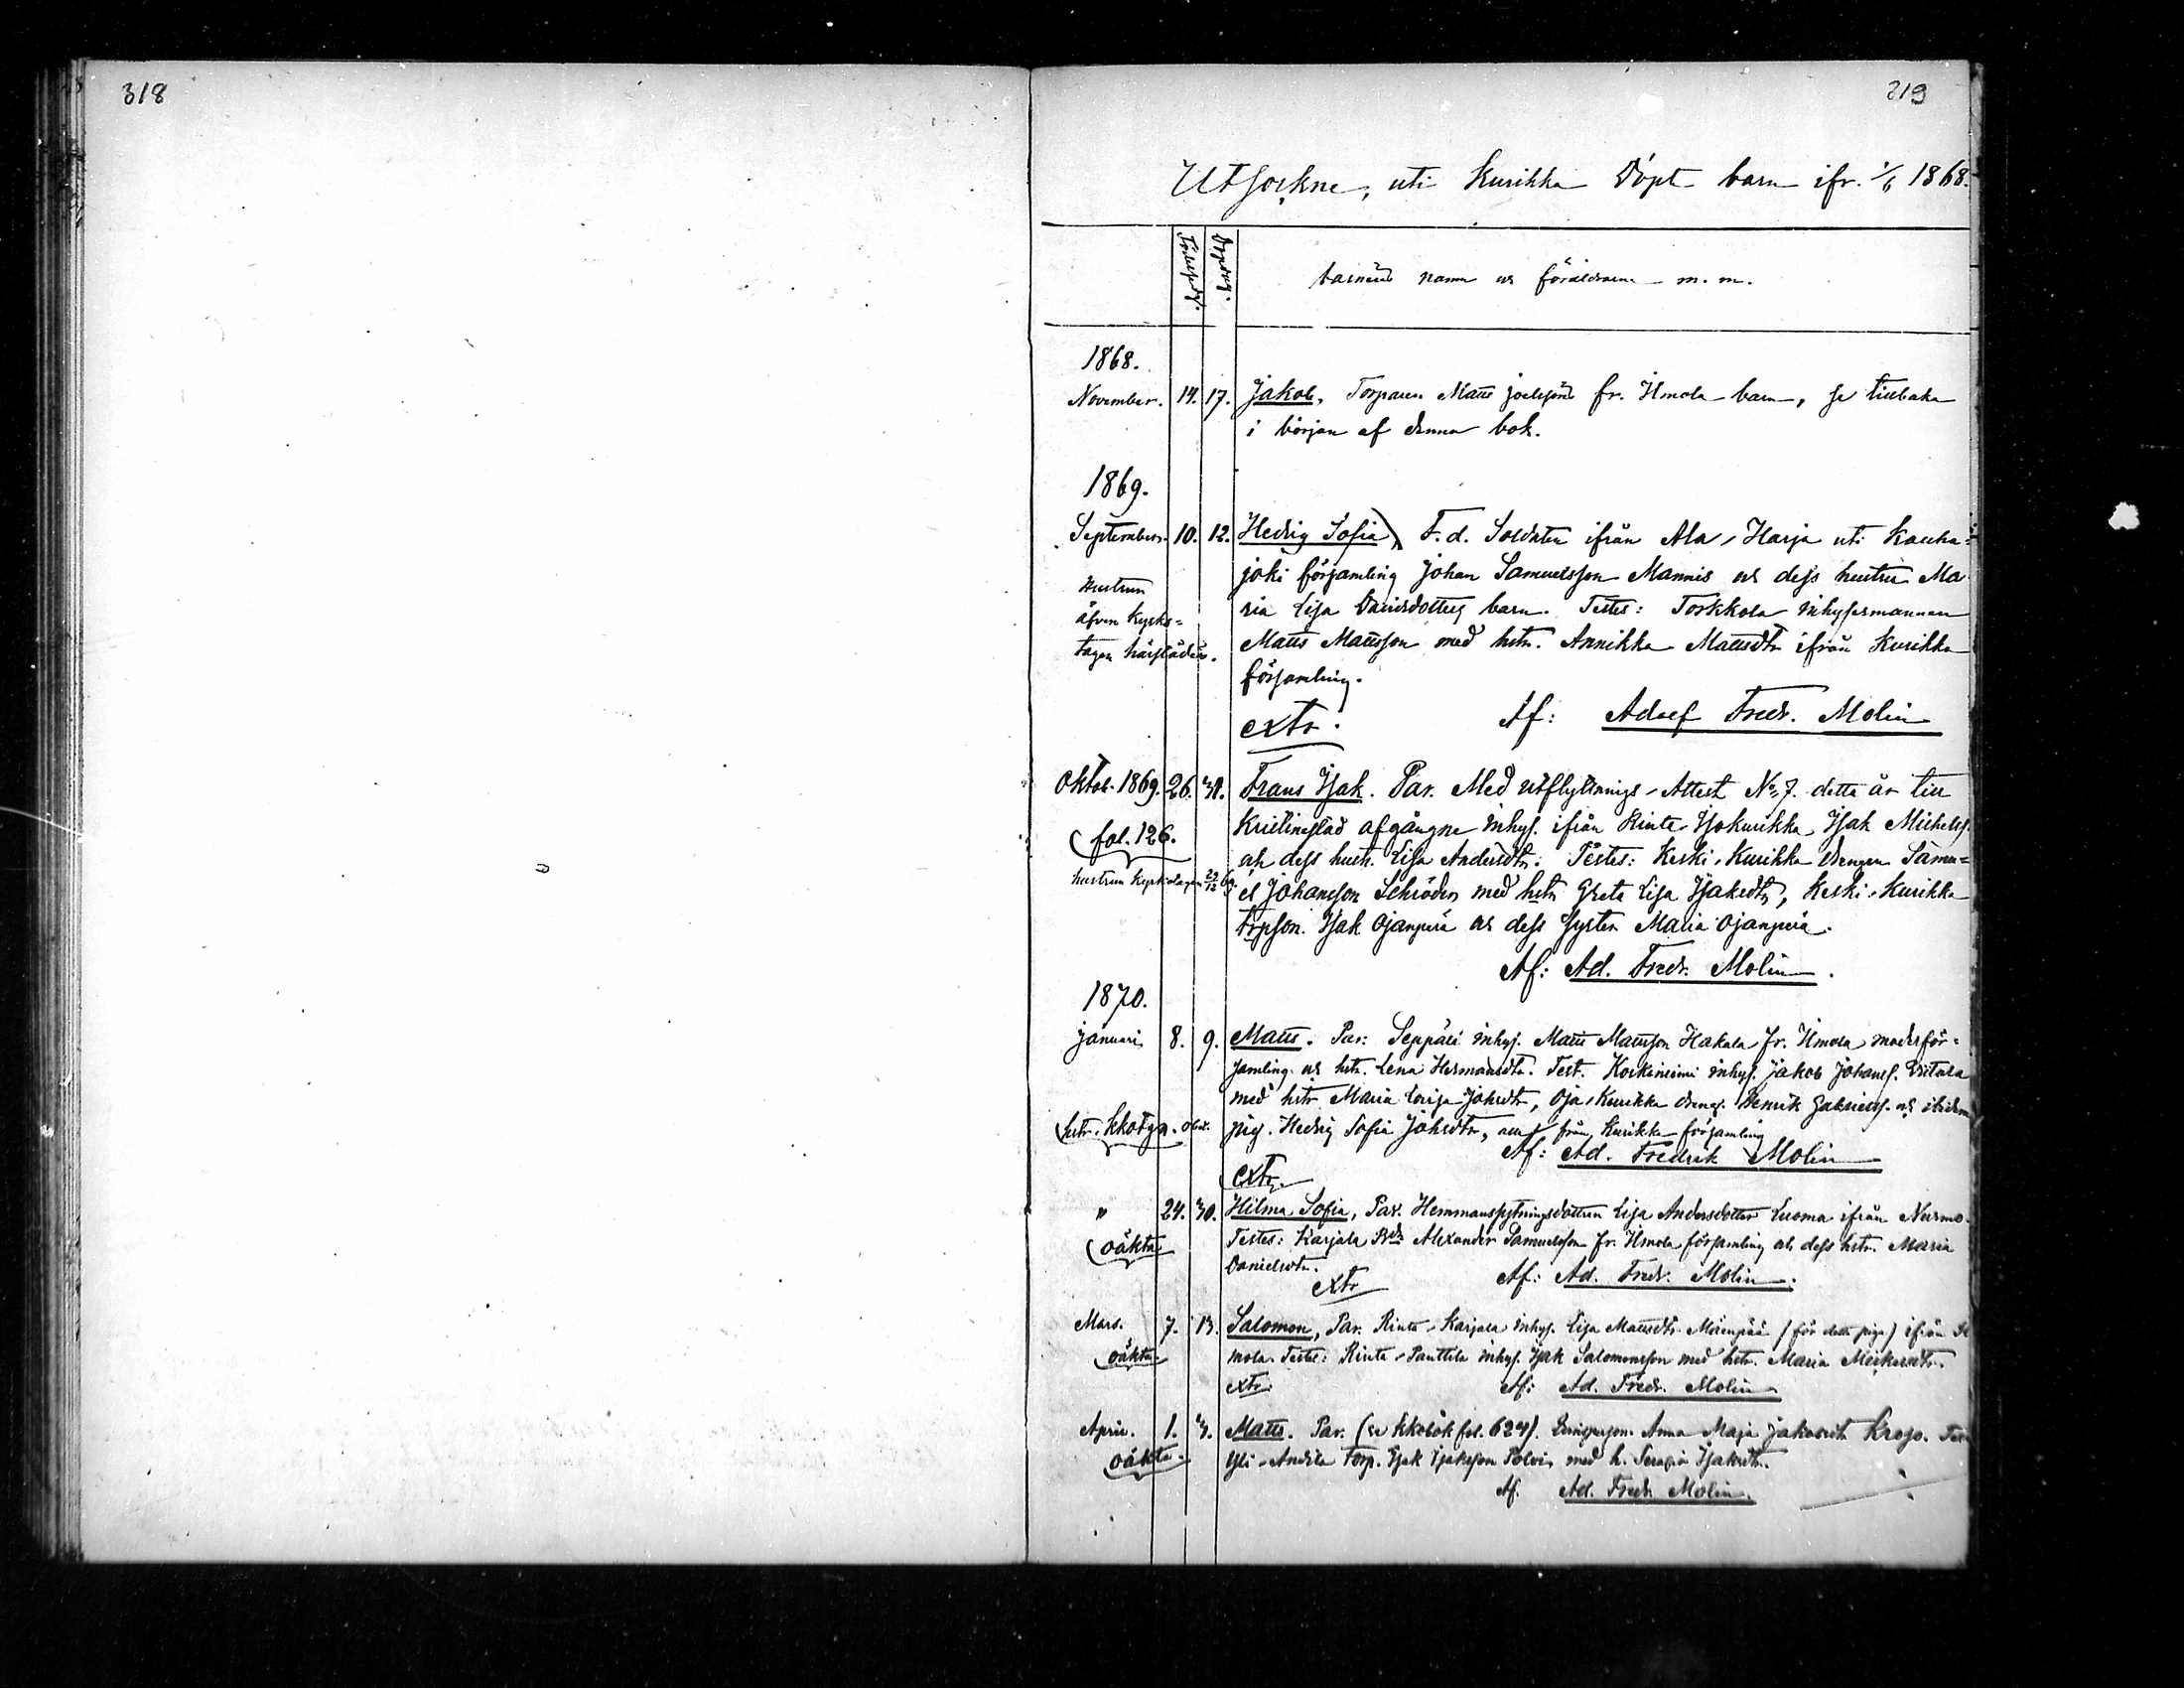 318
319
Utsockne, uti Kurikka Döpt barn ifr. 1/6 1868.
Födelsedag.
Dopdag.
barnens namn och föräldrarne m. m.
1868.
November. 14. 17. Jakob, Torparen Matts fr. Ilmola barn, se tillbaka
i början af denna bok.
1869.
September. 10. 12. Hedvig Sofia, F. d. Soldaten ifrån Ala-Harja uti Kauha=
joki församling Johan Samuelsson Mannis och dess hustru Ma
ria Lisa Danielsdotters barn. Testes: Torkkola inhysesmannen
Matts Mattsson med hstr. Annikka Mattsdtr ifrån Kurikka
församling.
Hustrun
äfven kyrko=
tagen härstädes.
extr. Af: Adolf Fredr. Molin
Oktob. 1869. 26. 31. Frans Isak. Par. Med utflyttnings-Attest No 7. detta år till
Kristinestad afgångne inhys. ifrån Rinta-Isokurikka Isak Michelss.
och dess hustr. Lisa Andersdtr. Testes: Keski-Kurikka drengen Samu=
el Johansson Schröder med hstr Greta Lisa Isaksdtr, Keski-Kurikka
torpson. Isak Ojanperä och dess syster Maria Ojanperä.
fol. 126.
hustrun kyrkotagen 29/12 69.
Af: Ad. Fredr. Molin.
1870.
Januari 8. 9. Matts. Par: Seppälä inhys. Matts Mattsson Hakala fr. Ilmola moderför=
samling och hstr. Lena Hermansdtr. Test. Koskiniemi inhys. Jakob Johanss.
med hstr Maria Lovisa Johsdtr, Oja-Kurikka dreng. Henrik Gabrielss. och ibidem
pig. Hedvig Sofia Johsdtr, all från Kurikka församling
hstr. kkotgn.
Af: Ad. Fredrik Molin
extr.
" 24. 30. Hilma Sofia, Par. Hemmansbytningsdottren Lisa Andersdotter Luoma ifrån Nurmo.
Testes: Karjala Bdr Alexander Samuelsson fr. Ilmola församling och dess hstr. Maria
Danielsdtr.
oäkta
extr Af: Ad. Fredr. Molin.
Mars. 7. 13. Salomon, Par. Rinta-Karjala inhys. Lisa Mattsdtr Mäenpää (för detta piga) ifrån Il
mola. Testes: Rinta-Panttila inhys. Isak Salomonsson med hstr. Maria
oäkta
extr. Af: Ad. Fredr. Molin
April. 1. 3. Matts. Par. (se kkobok fol. 624). Anna Maja Jakobsdtr Krojo. Tes
Yli-Anttila Torp. Isak Isaksson Polvi med h. Serafia Isaksdtr.
oäkta.
Af. Ad. Fredr Molin.